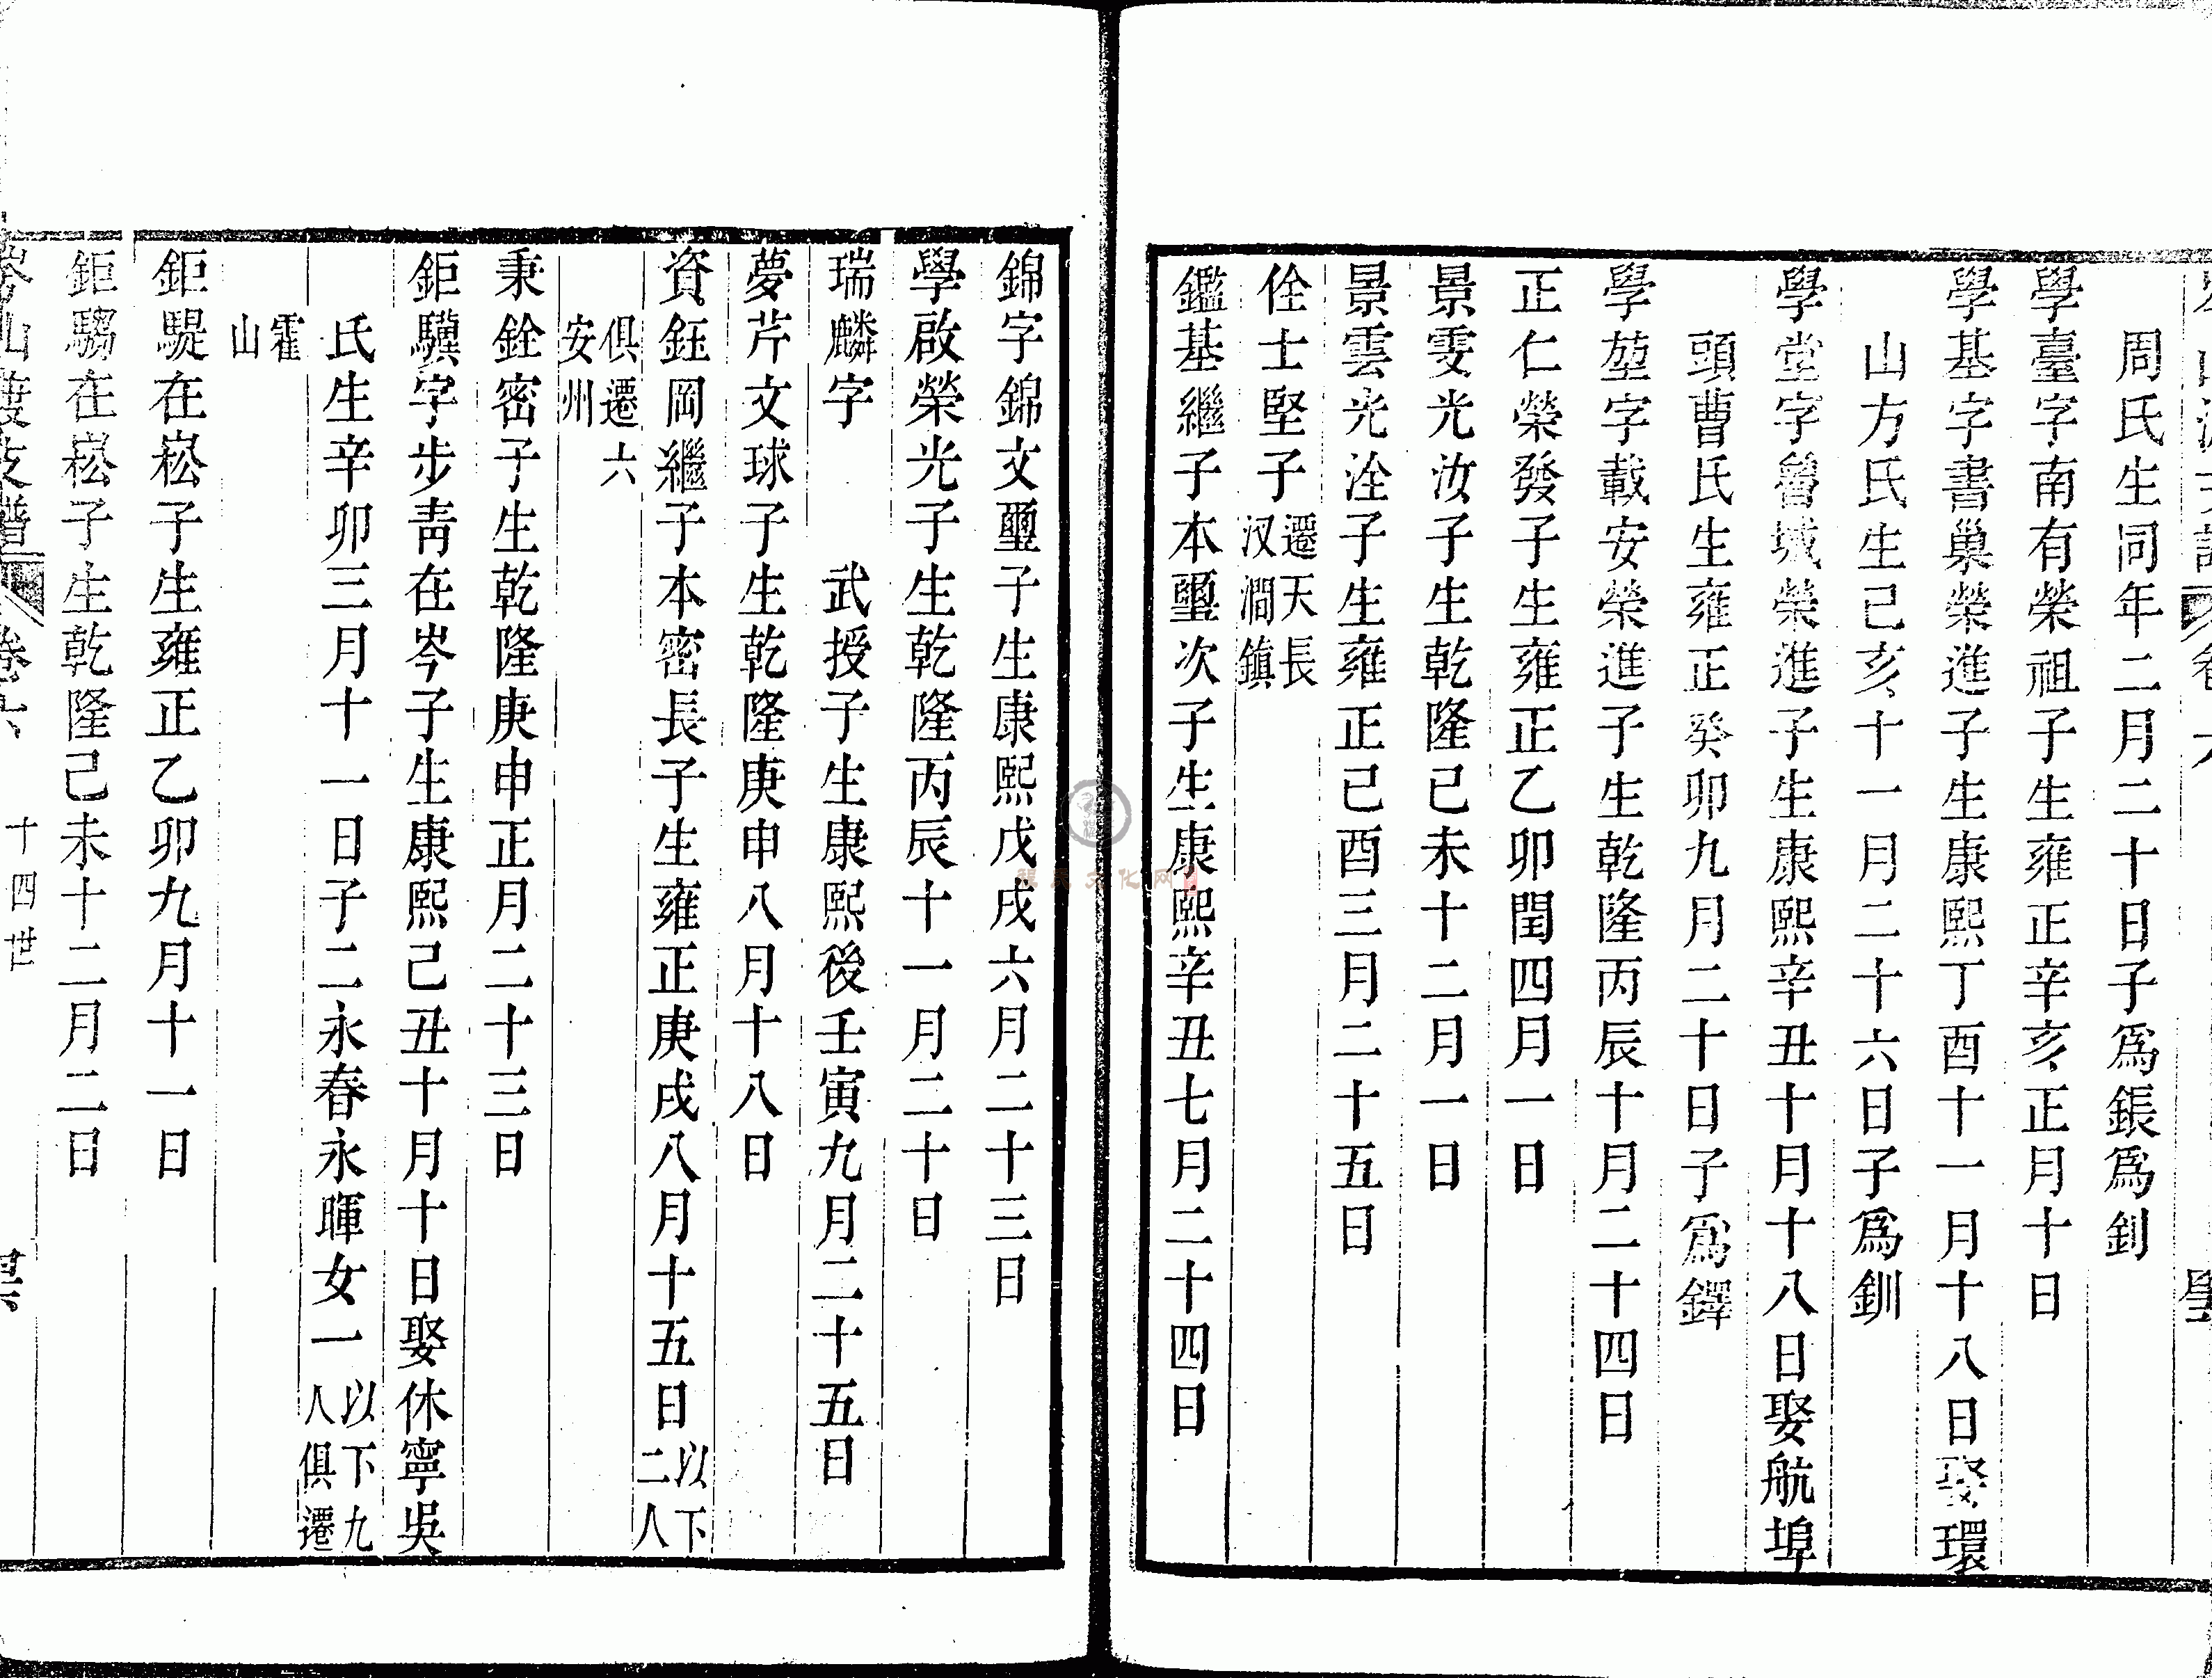 周氏生同年二月二十日子爲鋹爲釗
學臺字南有榮祖子生雍正辛亥正月十日
學基字書巢榮進子生康熙丁酉十一月十八日娶環
山方氏生己亥十一月二十六日子爲釧
學堂字魯城榮進子生康熙辛丑十月十八日娶航埠
頭曹氏生雍正癸卯九月二十日子爲鐸
學堃字載安榮進子生乾隆丙辰十月二十四日
正仁榮發子生雍正乙卯閏四月一日
景雯光汝子生乾隆己未十二月一日
景雲光洤子生雍正己酉三月二十五日
佺士堅子遷天長汊澗鎮
鑑基繼子本璽次子生康熙辛丑七月二十四日
錦字錦文璽子生康熙戊戌六月二十三日
學啟榮光子生乾隆丙辰十一月二十日
瑞麟字　武授子生康熙後壬寅九月二十五日
夢芹文球子生乾隆庚申八月十八日
資鈺岡繼子本密長子生雍正庚戌八月十五日以下二人
俱遷六安州
秉銓密子生乾隆庚申正月二十三日
鉅驥字步青在岑子生康熙己丑十月十日娶休寧吳
氏生辛卯三月十一日子二永春永暉女一以下九人俱遷
霍山
鉅騠在崧子生雍正乙卯九月十一日
鉅騶在崧子生乾隆己未十二月二日
卷六　十四世